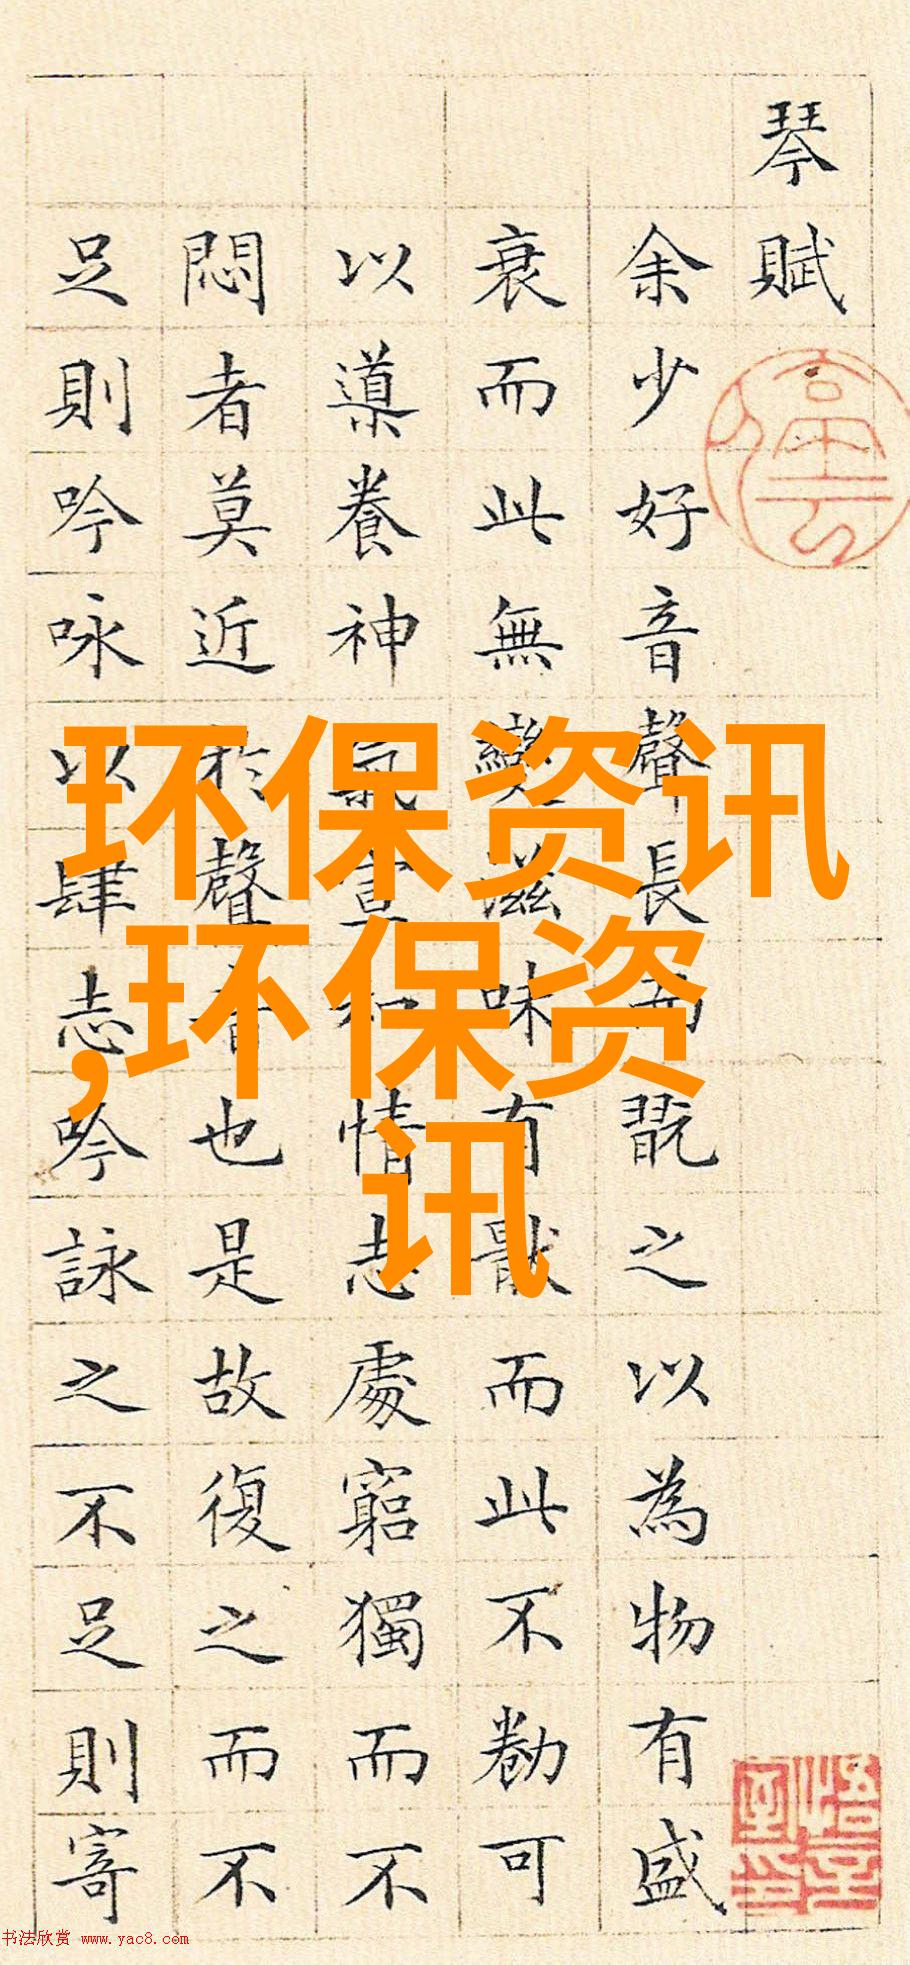 琴賦
停云
余少好音聲長而翫之以為物有盛
衰而此無變滋味有猒而此不勌可
以導養神氣宣和情志處窮獨而不
悶者莫近於聲音也是故復之而不
足則吟咏以肆志吟詠之不足則寄
悟言室印
环保资讯
,环保资
讯
书法欣赏 www.yac8.com